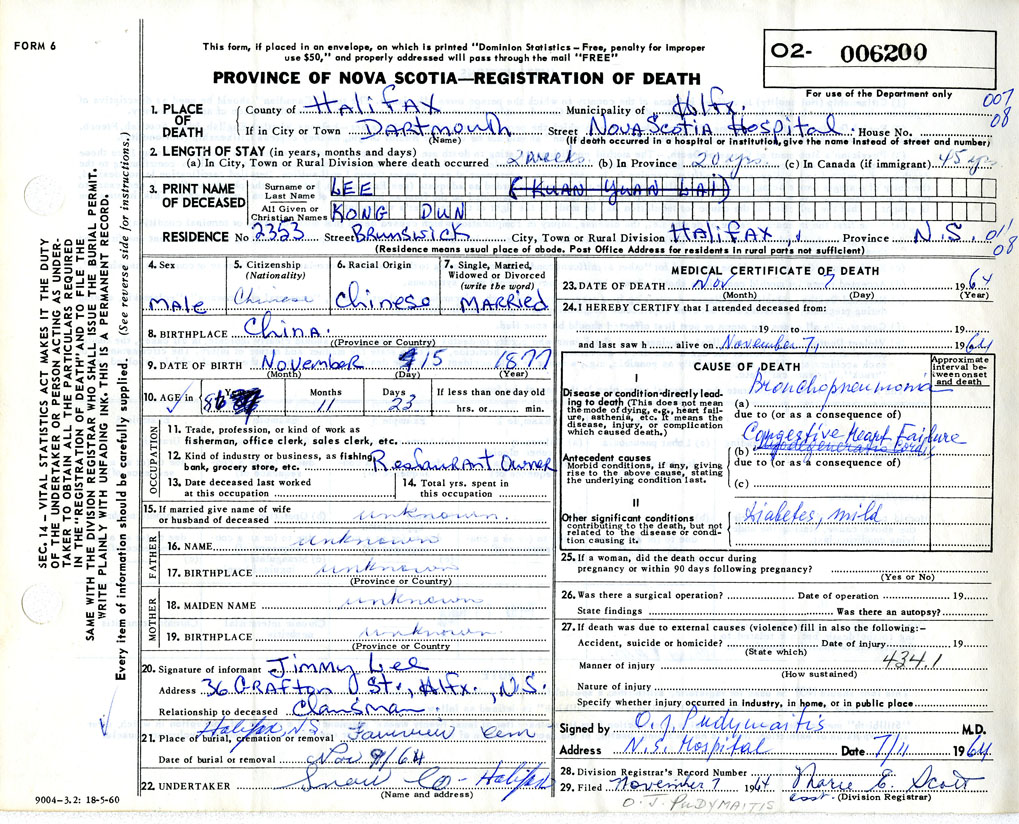 FORM 6
This form, if placed in an envelope, on which is printed "Dominion Statistics – Free, penalty for improper
use $50," and properly addressed will pass through the mail "FREE"
O2- 006200
For use of the Department only
PROVINCE OF NOVA SCOTIA—REGISTRATION OF DEATH
007
08
1. PLACE OF DEATH
County of Halifax Municipality of Hlfx.
If in City or Town Dartmouth Street Nova Scotia Hospital. House No.
(Name) (If death occurred in a hospital or institution, give the name instead of street and number)
2. LENGTH OF STAY (in years, months and days)
(a) In City, Town or Rural Division where death occurred 2 weeks (b) In Province 20 yrs (c) In Canada (if immigrant) 45 yrs
3. PRINT NAME OF DECEASED
Surname or Last Name LEE (KUAN YUAN LAI)
All Given or Christian Names KONG DUN
RESIDENCE No 2353 Street Brunswick City, Town or Rural Division Halifax, Province N.S.
011
08
(Residence means usual place of abode. Post Office Address for residents in rural parts not sufficient)
4. Sex
MALE
5. Citizenship
(Nationality)
Chinese
6. Racial Origin
Chinese
7. Single, Married,
Widowed or Divorced
(write the word)
MARRIED
8. BIRTHPLACE China.
(Province or Country)
9. DATE OF BIRTH November 15 1877
(Month) (Day) (Year)
10. AGE in Years Months Days If less than one day old
86 11 23 hrs. or min.
OCCUPATION
11. Trade, profession, or kind of work as
fisherman, office clerk, sales clerk, etc.
12. Kind of industry or business, as fishing,
bank, grocery store, etc. Restaurant Owner
13. Date deceased last worked
at this occupation
14. Total yrs. spent in
this occupation
15. If married give name of wife
or husband of deceased unknown.
FATHER
16. NAME unknown
17. BIRTHPLACE unknown
(Province or Country)
MOTHER
18. MAIDEN NAME unknown
19. BIRTHPLACE unknown
(Province or Country)
20. Signature of informant Jimmy Lee
Address 36 Grafton St., Hlfx., N.S.
Relationship to deceased Clansman.
Halifax, N.S.
21. Place of burial, cremation or removal Fairview Cem
Date of burial or removal Nov 9/64
22. UNDERTAKER Snow Co - Halifax
(Name and address)
9004–3.2: 18-5-60
MEDICAL CERTIFICATE OF DEATH
23. DATE OF DEATH Nov 7 1964
(Month) (Day) (Year)
24. I HEREBY CERTIFY that I attended deceased from:
19 to 19
and last saw h alive on November 7, 1964
CAUSE OF DEATH
Approximate interval between onset and death
I
Disease or condition directly leading to death (This does not mean the mode of dying, e.g., heart failure, asthenia, etc. It means the disease, injury, or complication which caused death.)
(a) Bronchopneumonia
due to (or as a consequence of)
Congestive Heart Failure
(b)
due to (or as a consequence of)
(c)
Antecedent causes
Morbid conditions, if any, giving rise to the above cause, stating the underlying condition last.
II
Other significant conditions
contributing to the death, but not related to the disease or condition causing it.
Diabetes, mild
25. If a woman, did the death occur during
pregnancy or within 90 days following pregnancy?
(Yes or No)
26. Was there a surgical operation? Date of operation 19
State findings Was there an autopsy?
27. If death was due to external causes (violence) fill in also the following:–
Accident, suicide or homicide? Date of injury 19
(State which)
434.1
Manner of injury
(How sustained)
Nature of injury
Specify whether injury occurred in industry, in home, or in public place
Signed by O. J. Pudymaitis M.D.
Address N.S. Hospital Date 7/11 1964
28. Division Registrar's Record Number
29. Filed November 7 1964 Marie E. Scott
asst. (Division Registrar)
O. J. PUDYMAITIS
SEC. 14 – VITAL STATISTICS ACT MAKES IT THE DUTY
OF THE UNDERTAKER OR PERSON ACTING AS UNDER-
TAKER TO OBTAIN ALL THE PARTICULARS REQUIRED
IN THE "REGISTRATION OF DEATH" AND TO FILE THE
SAME WITH THE DIVISION REGISTRAR WHO SHALL ISSUE THE BURIAL PERMIT.
WRITE PLAINLY WITH UNFADING INK. THIS IS A PERMANENT RECORD.
Every item of information should be carefully supplied. (See reverse side for instructions.)